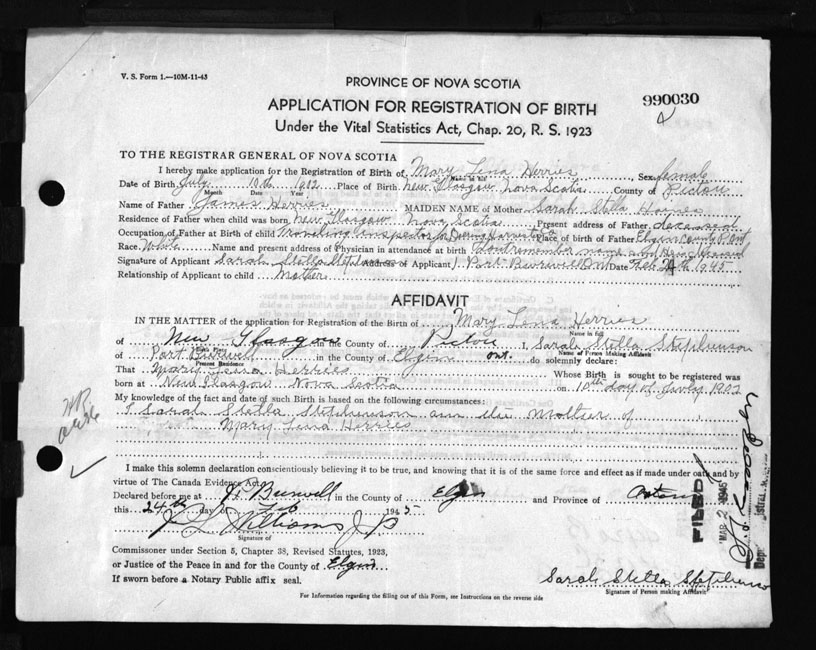 V. S. Form 1.—10M-11-43
PROVINCE OF NOVA SCOTIA
990030
APPLICATION FOR REGISTRATION OF BIRTH
Under the Vital Statistics Act, Chap. 20, R. S. 1923
TO THE REGISTRAR GENERAL OF NOVA SCOTIA
I hereby make application for the Registration of Birth of Mary Lena Herries, Sex female
Date of Birth July 10th 1902 Place of Birth New Glasgow Nova Scotia County of Pictou
Month Date Year
Name of Father James Herries MAIDEN NAME of Mother Sarah Stella Haynes
Residence of Father when child was born, New Glasgow Nova Scotia Present address of Father deceased
Occupation of Father at Birth of child Traveling Inspector for Deering Harvester Co Place of birth of Father Elgin County Ont
Race White Name and present address of Physician in attendance at birth dont remember name
Signature of Applicant Sarah Stella Stephenson Address of Applicant Port Burwell Ont Date Feb 24th 1945
Relationship of Applicant to child Mother
AFFIDAVIT
IN THE MATTER of the application for Registration of the Birth of Mary Lena Herries
Name in full
of New Glasgow in the County of Pictou I, Sarah Stella Stephenson
Name of Person Making Affidavit
of Port Burwell in the County of Elgin Ont. do solemnly declare:
Present Residence
That Mary Lena Herries Whose Birth is sought to be registered was
born at New Glasgow Nova Scotia on 10th day of July 1902
My knowledge of the fact and date of such Birth is based on the following circumstances:
I Sarah Stella Stephenson am the Mother of
Mary Lena Herries
I make this solemn declaration conscientiously believing it to be true, and knowing that it is of the same force and effect as if made under oath and by
virtue of The Canada Evidence Act.
Declared before me at Pt Burwell in the County of Elgin and Province of Ontario
this 24th day of Feb 1945
J L Williams J.P.
Signature of
Commissioner under Section 5, Chapter 38, Revised Statutes, 1923,
or Justice of the Peace in and for the County of Elgin
If sworn before a Notary Public affix seal.
Sarah Stella Stephenson
Signature of Person making Affidavit
For Information regarding the filling out of this Form, see Instructions on the reverse side
FILED
MAR 2 1945